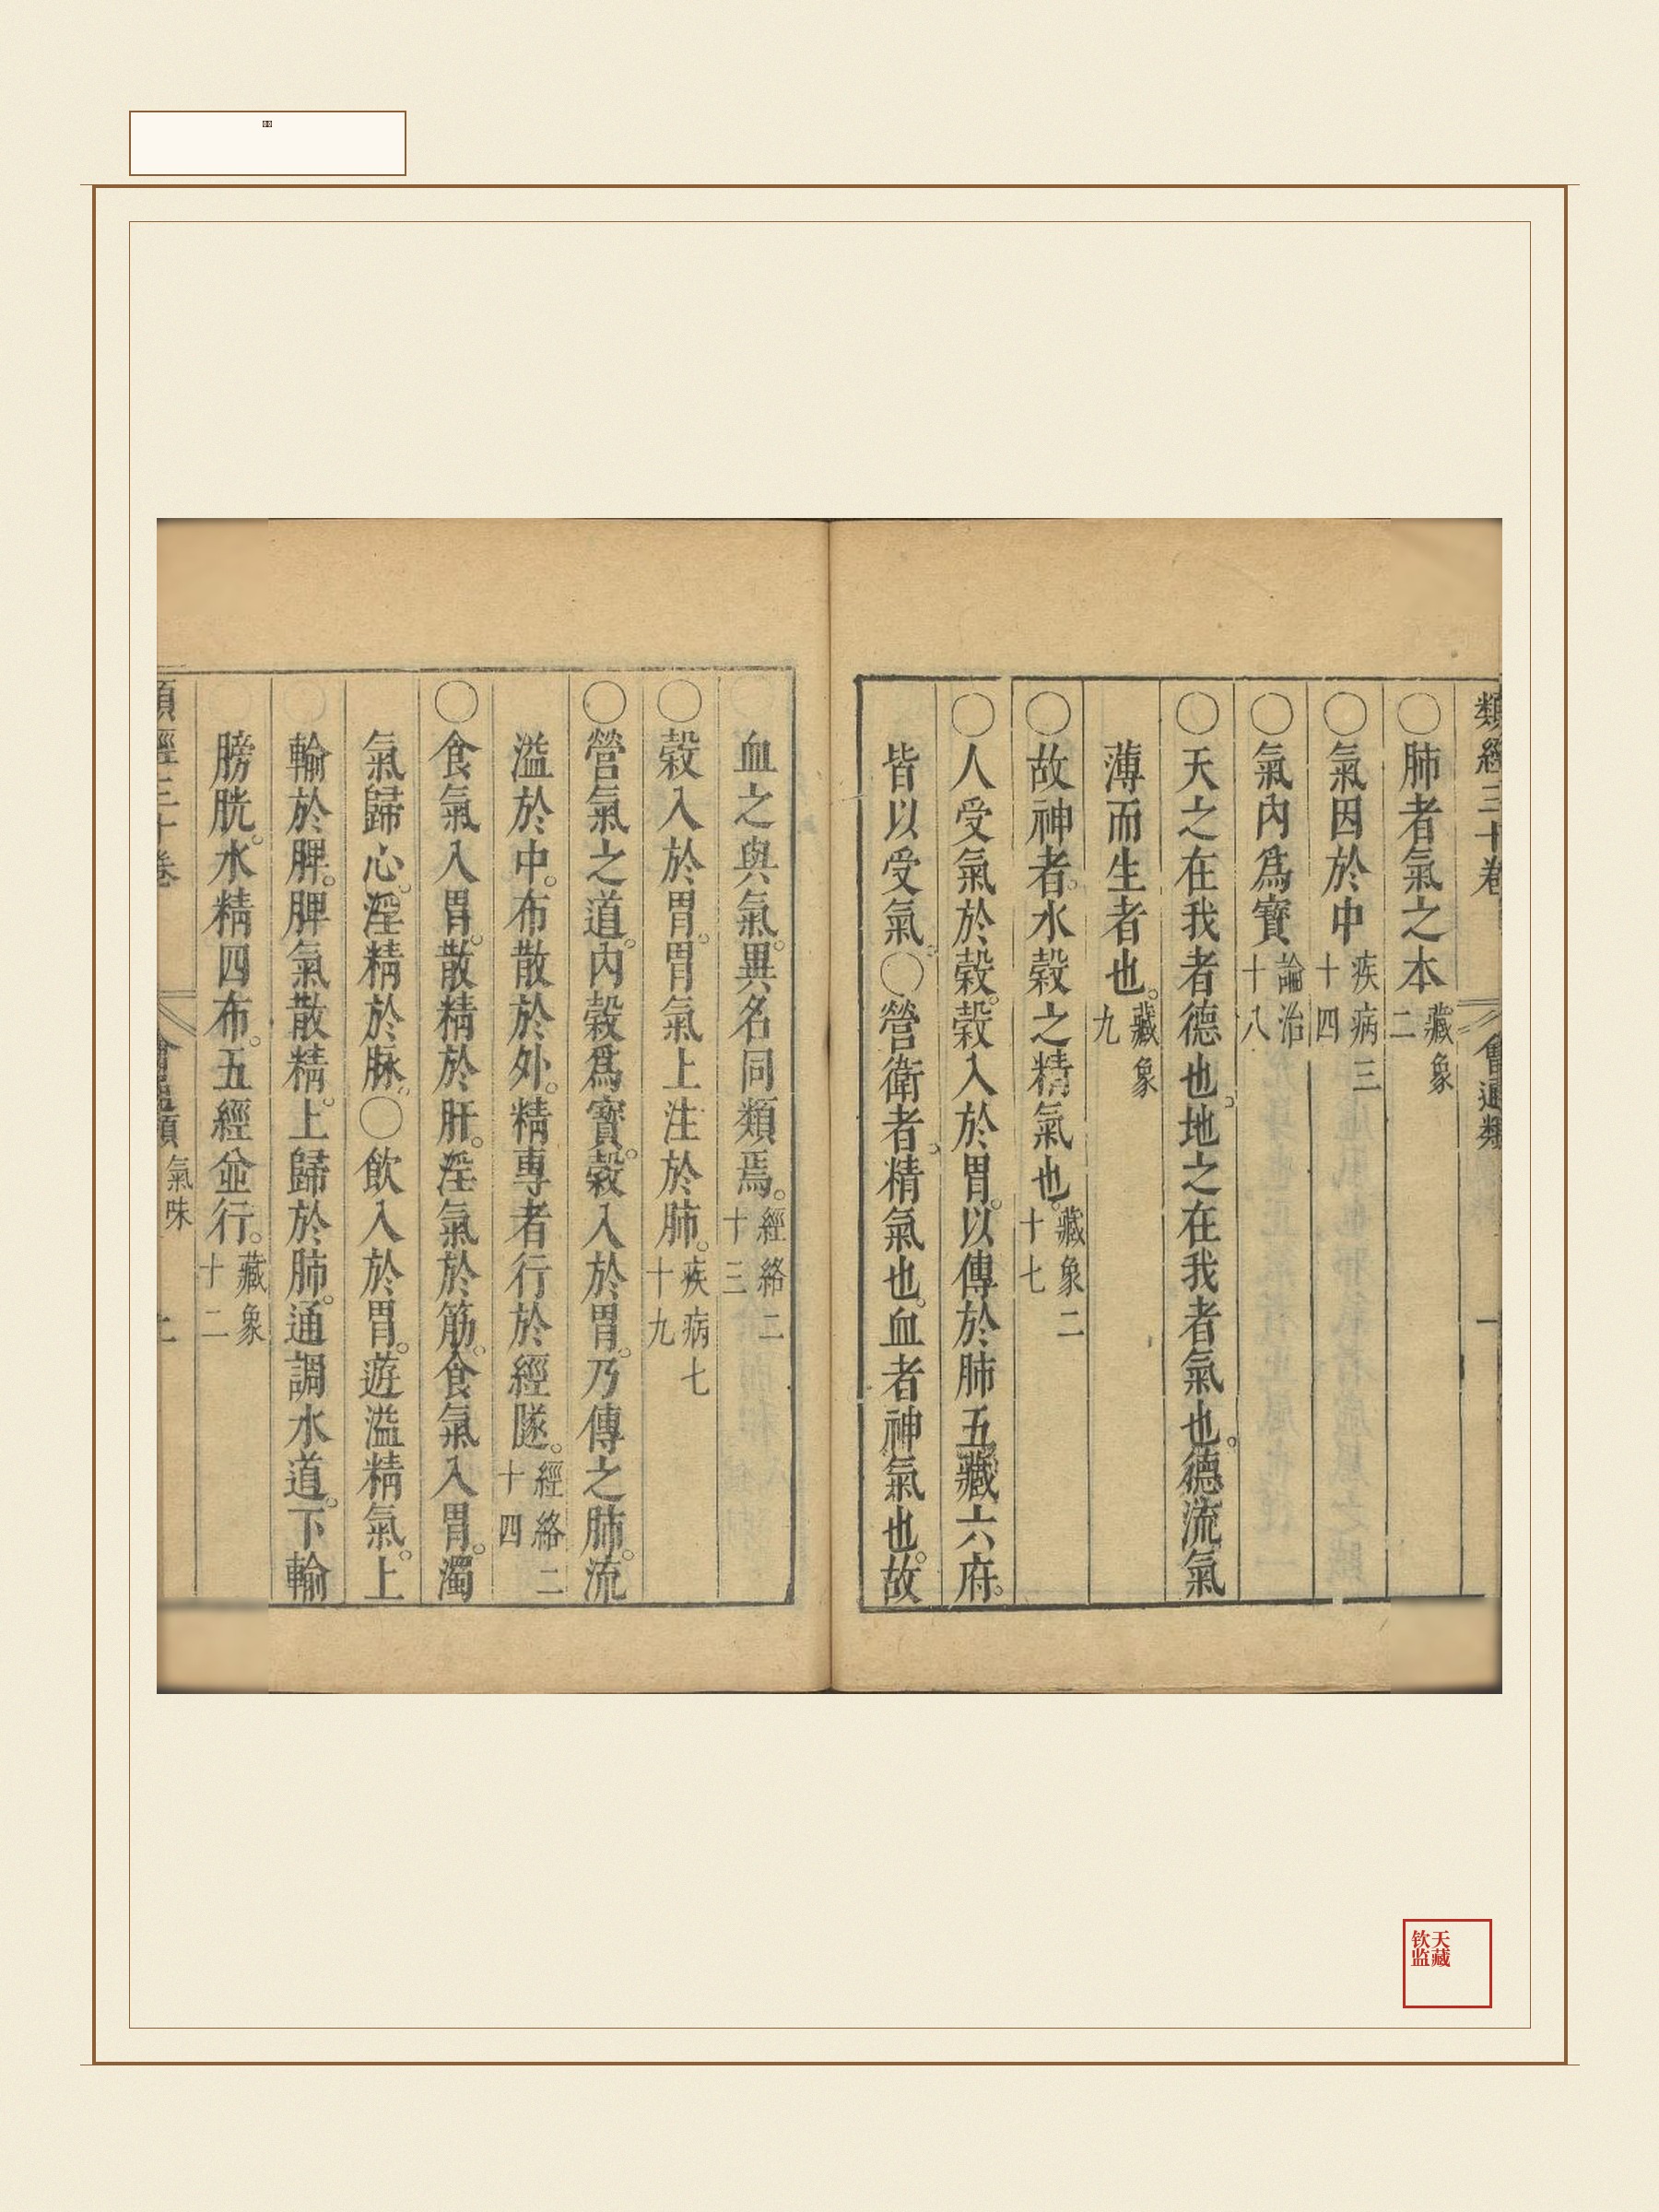 類經三十卷 會通類 一
〇肺者氣之本藏象二
〇氣因於中疾病三十四
〇氣內爲寳論治十八
〇天之在我者德也。地之在我者氣也。德流氣
薄而生者也。藏象九
〇故神者。水穀之精氣也。藏象二十七
〇人受氣於穀。穀入於胃。以傳於肺五藏六府。
皆以受氣。〇營衛者。精氣也。血者神氣也。故
血之與氣。異名同類焉。經絡二十三
〇穀入於胃。胃氣上注於肺。疾病七十九
〇營氣之道。內穀爲寳。穀入於胃。乃傳之肺。流
溢於中。布散於外。精專者行於經隧。經絡二十四
〇食氣入胃。散精於肝。淫氣於筋。食氣入胃。濁
氣歸心。淫精於脉。〇飲入於胃。遊溢精氣。上
輸於脾。脾氣散精。上歸於肺。通調水道。下輸
膀胱。水精四布。五經並行。藏象十二
類經三十卷 會通類 氣味
天藏
钦监